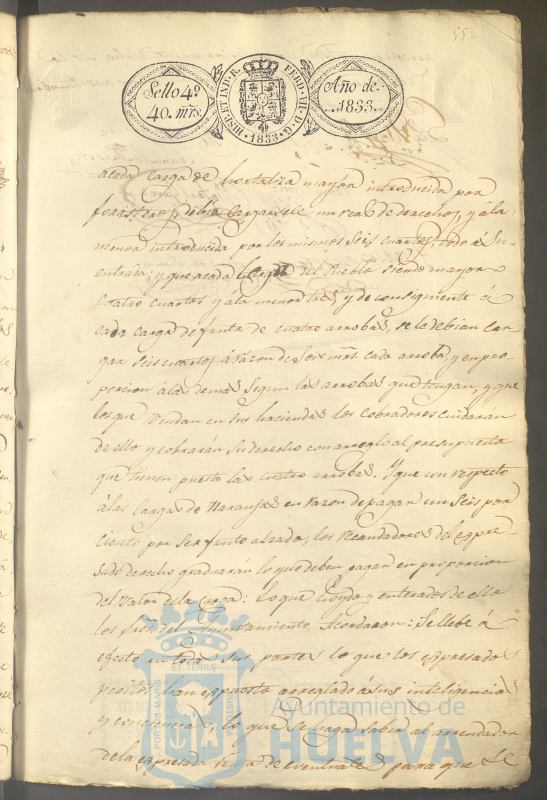 55
Sello 4º
40. mrs.
HISP. ET IND. R. FERD. VII. D. G. 1833
Año de
1833.
acada Carga de hortaliza mayor introducida por
forasteros, debia Cargarsele un real de derechos, y ála
menor introducida por los mismos Seis cuartos, todo á Su
entrada; y que acada Carga del Pueblo siendo mayor
Cuatro cuartos y ála menor tres, y de consiguiente á
cada carga de fruta de cuatro arrobas, se la debian Car-
gar Seis cuartos, á Razon de Seis mrs. cada arroba, y en pro-
porcion ála demas Segun las arrobas que tengan, y que
los que Vendan en sus haciendas los Cobradores cuidaran
de ello y cobrarán Su derecho con arreglo al presupuesto
que tienen puesto las cuatro arrobas. Y que con respecto
álas Cargas de Naranjas en razon de pagar un Seis por
Ciento por Ser fruto alzado, los Recaudadores del expre-
sado derecho graduaran lo que deben pagar en proporcion
del Valor dela Carga: Lo que oiydo y enterados de ello
los Sres. del Ayuntamiento Acordaron: Se llebe á
efecto en todas sus partes lo que los expresados
peritos han expuesto arreglado á sus inteligencias
y conciencias, lo que Se haga Saber al arrendador
dela Expresada Renta de eventuales para que Se
PORTUS MARIS
ET TERRÆ
CUSTODIA
Ayuntamiento de
HUELVA